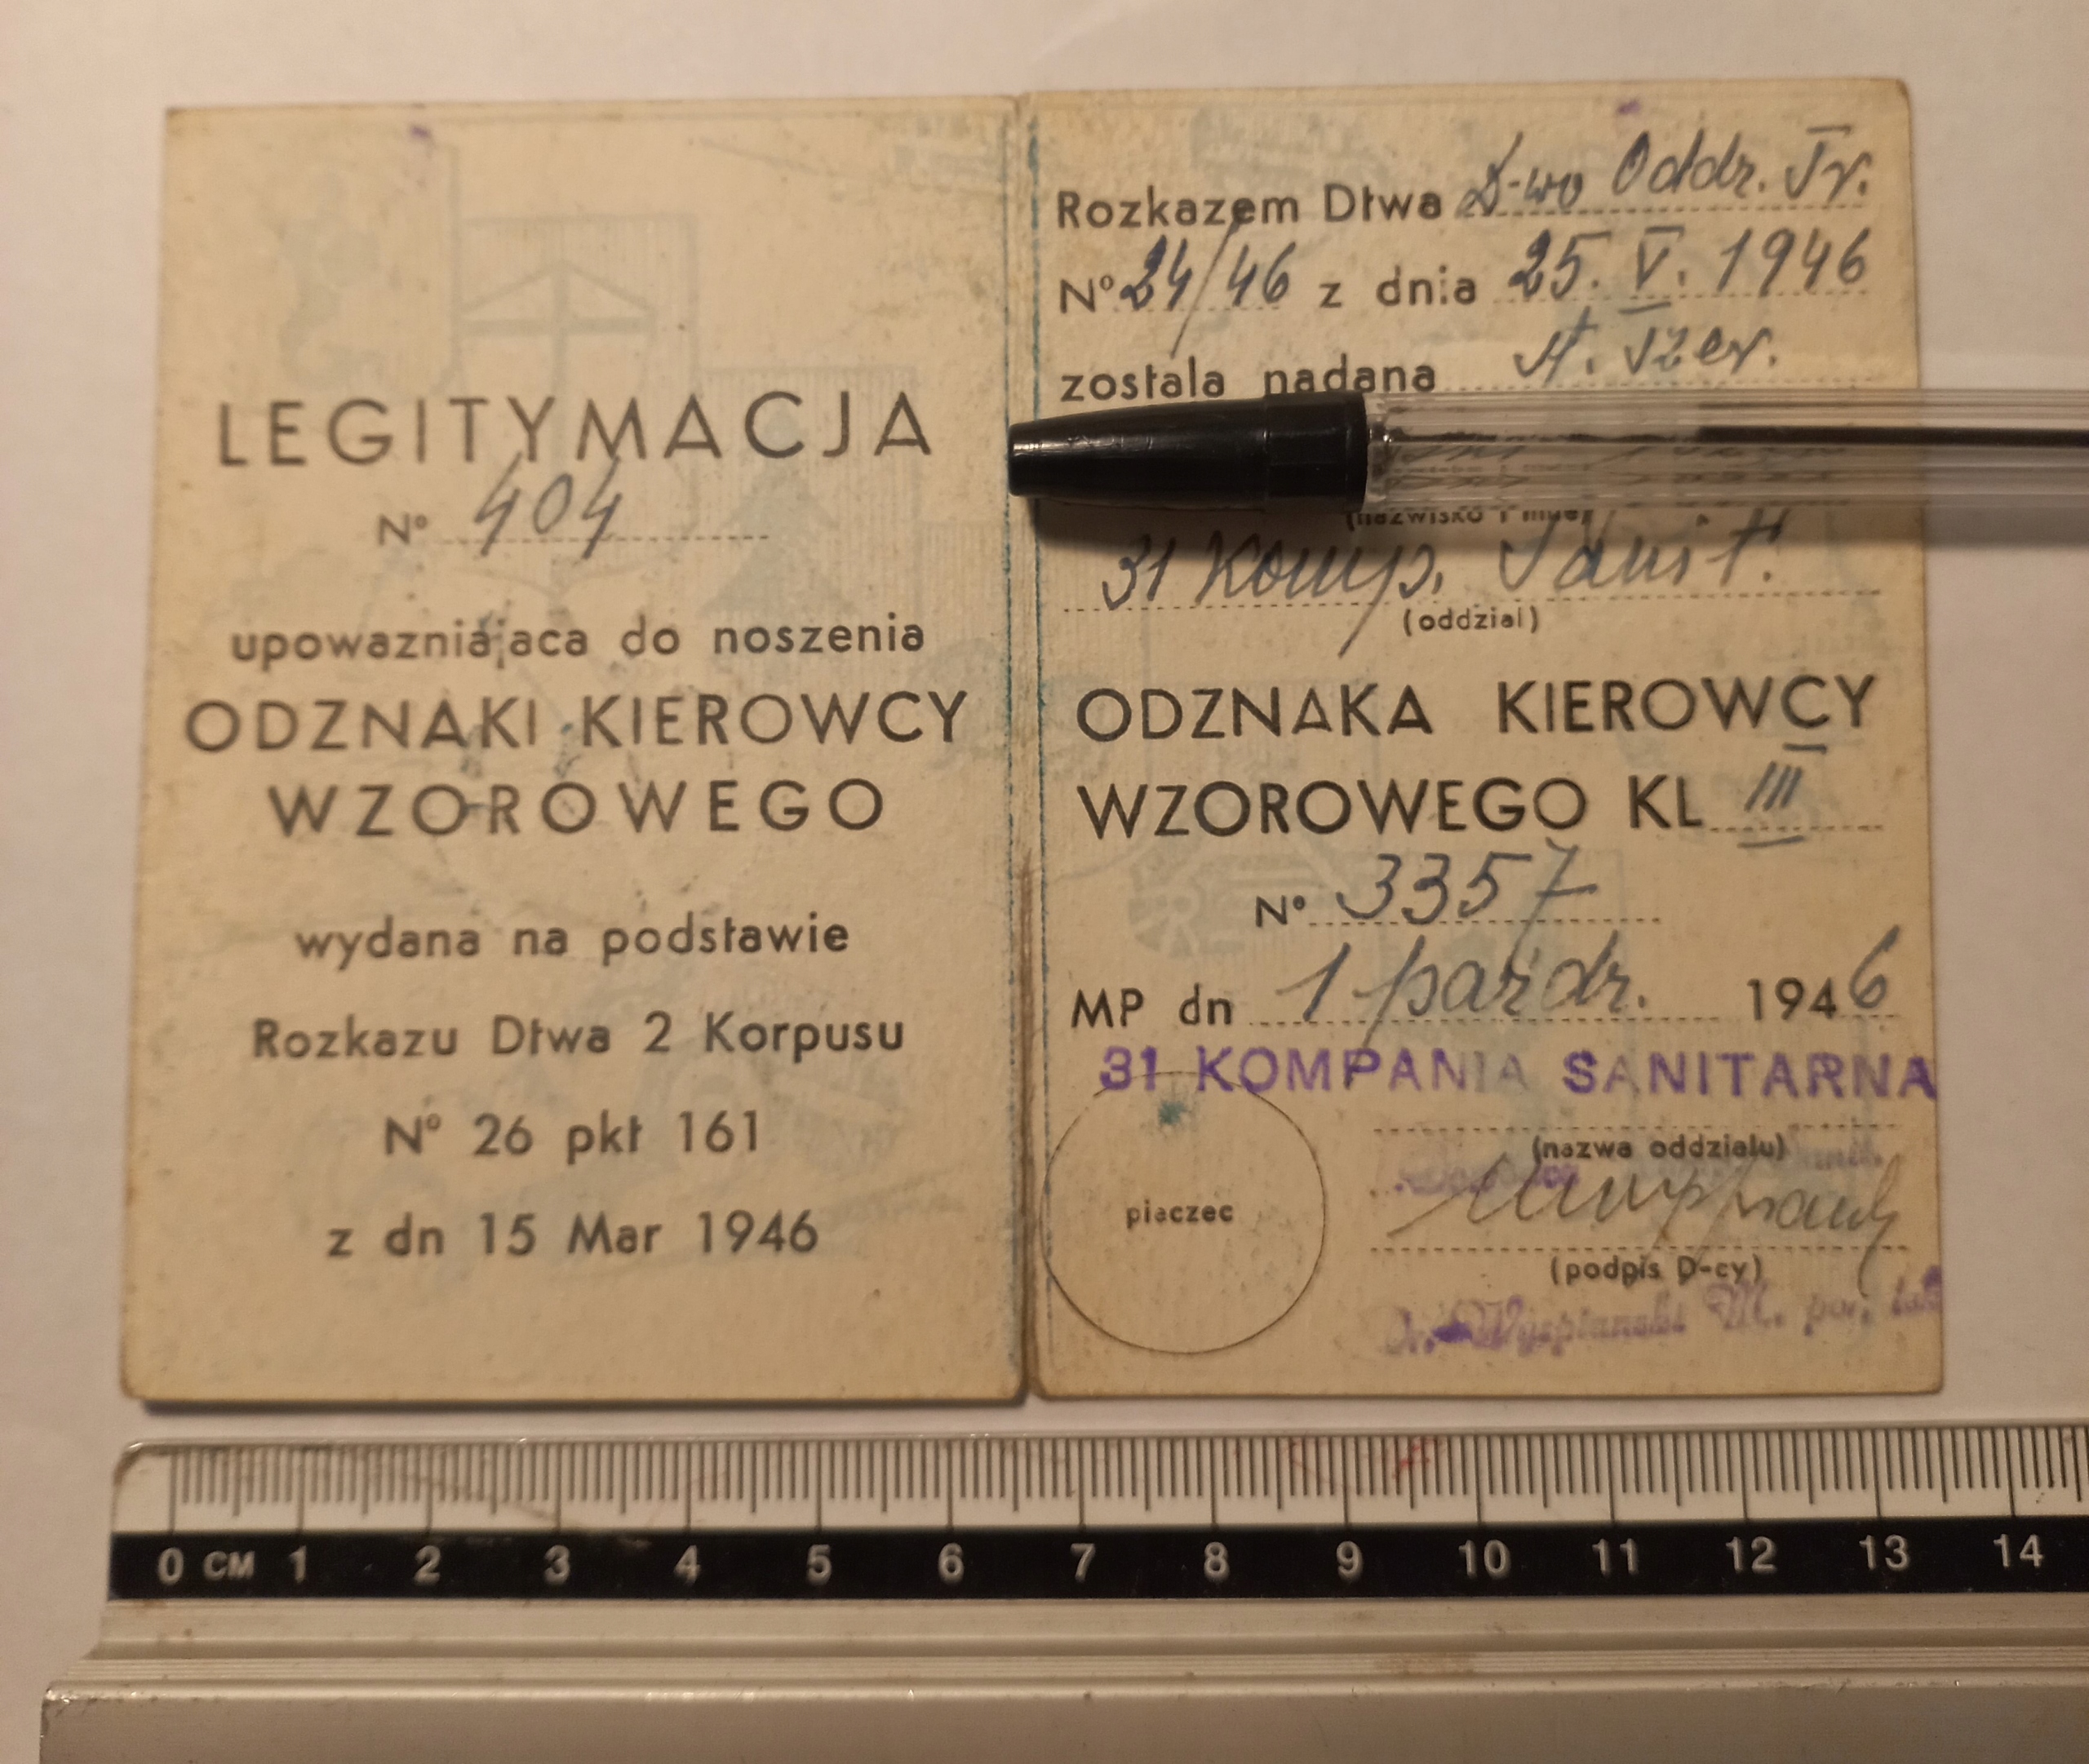 LEGITYMACJA
Nº 404
upowazniajaca do noszenia
ODZNAKI KIEROWCY
WZOROWEGO
wydana na podstawie
Rozkazu Dtwa 2 Korpusu
Nº 26 pkt 161
z dn 15 Mar 1946
Rozkazem Dtwa D-wo Oddz. Tr.
Nº 24/46 z dnia 25. V. 1946
zostala nadana st. szer.
(nazwisko i imie)
31 Komp. Sanit.
(oddzial)
ODZNAKA KIEROWCY
WZOROWEGO KL III
Nº 3357
MP dn 1 paźdr. 1946
31 KOMPANIA SANITARNA
(nazwa oddzialu)
pieczec
(podpis D-cy)
Dr. Wyspianski M. por. lek
0 CM 1 2 3 4 5 6 7 8 9 10 11 12 13 14